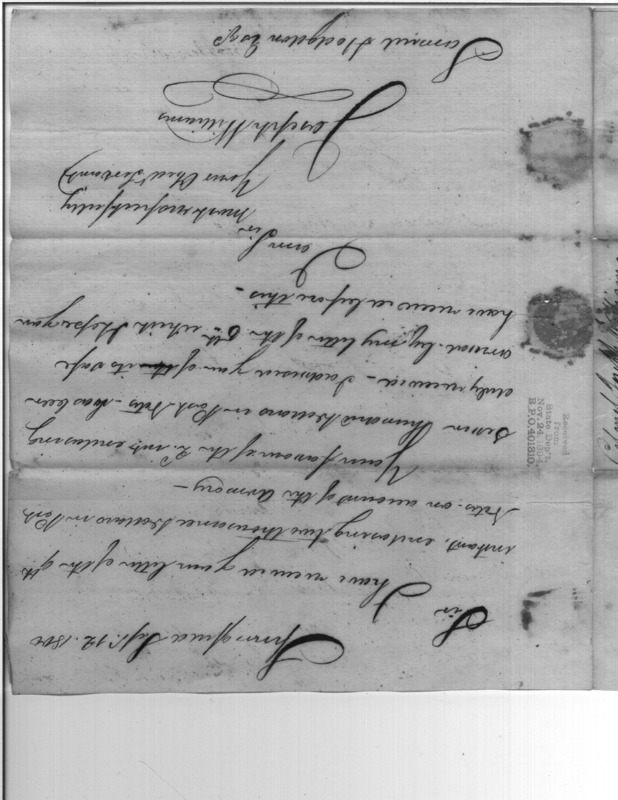 Springfield Sept. 12. 1800
Sir
I have received your letter of the 9th
instant, enclosing two thousand Dollars in Post
Notes. on account of the Armory —
Your favour of the 2d. inst. enclosing
Seven Thousand Dollars in Post Notes has been
duly received — I advised you of its safe
arrival by my letter of the 8th. which I hope you
have received before this —
I am
Sir
most respectfully
Your Obedt Servant
Joseph Williams
Samuel Hodgdon Esqr
Received
from
State Dep't,
Nov. 24, 1894
R.P.O. 401810.